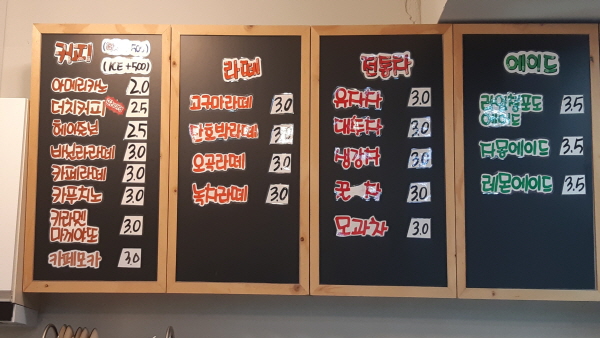 커피
(ICE +500)
아메리카노 2.0
더치커피 2.5
헤이즈넛 2.5
바닐라라떼 3.0
카페라떼 3.0
카푸치노 3.0
카라멜
마끼아또 3.0
카페모카 3.0
라떼
고구마라떼 3.0
단호박라떼 3.0
오곡라떼 3.0
녹차라떼 3.0
전통차
유자차 3.0
대추차 3.0
생강차 3.0
차 3.0
모과차 3.0
에이드
청포도
에이드 3.5
자몽에이드 3.5
레몬에이드 3.5